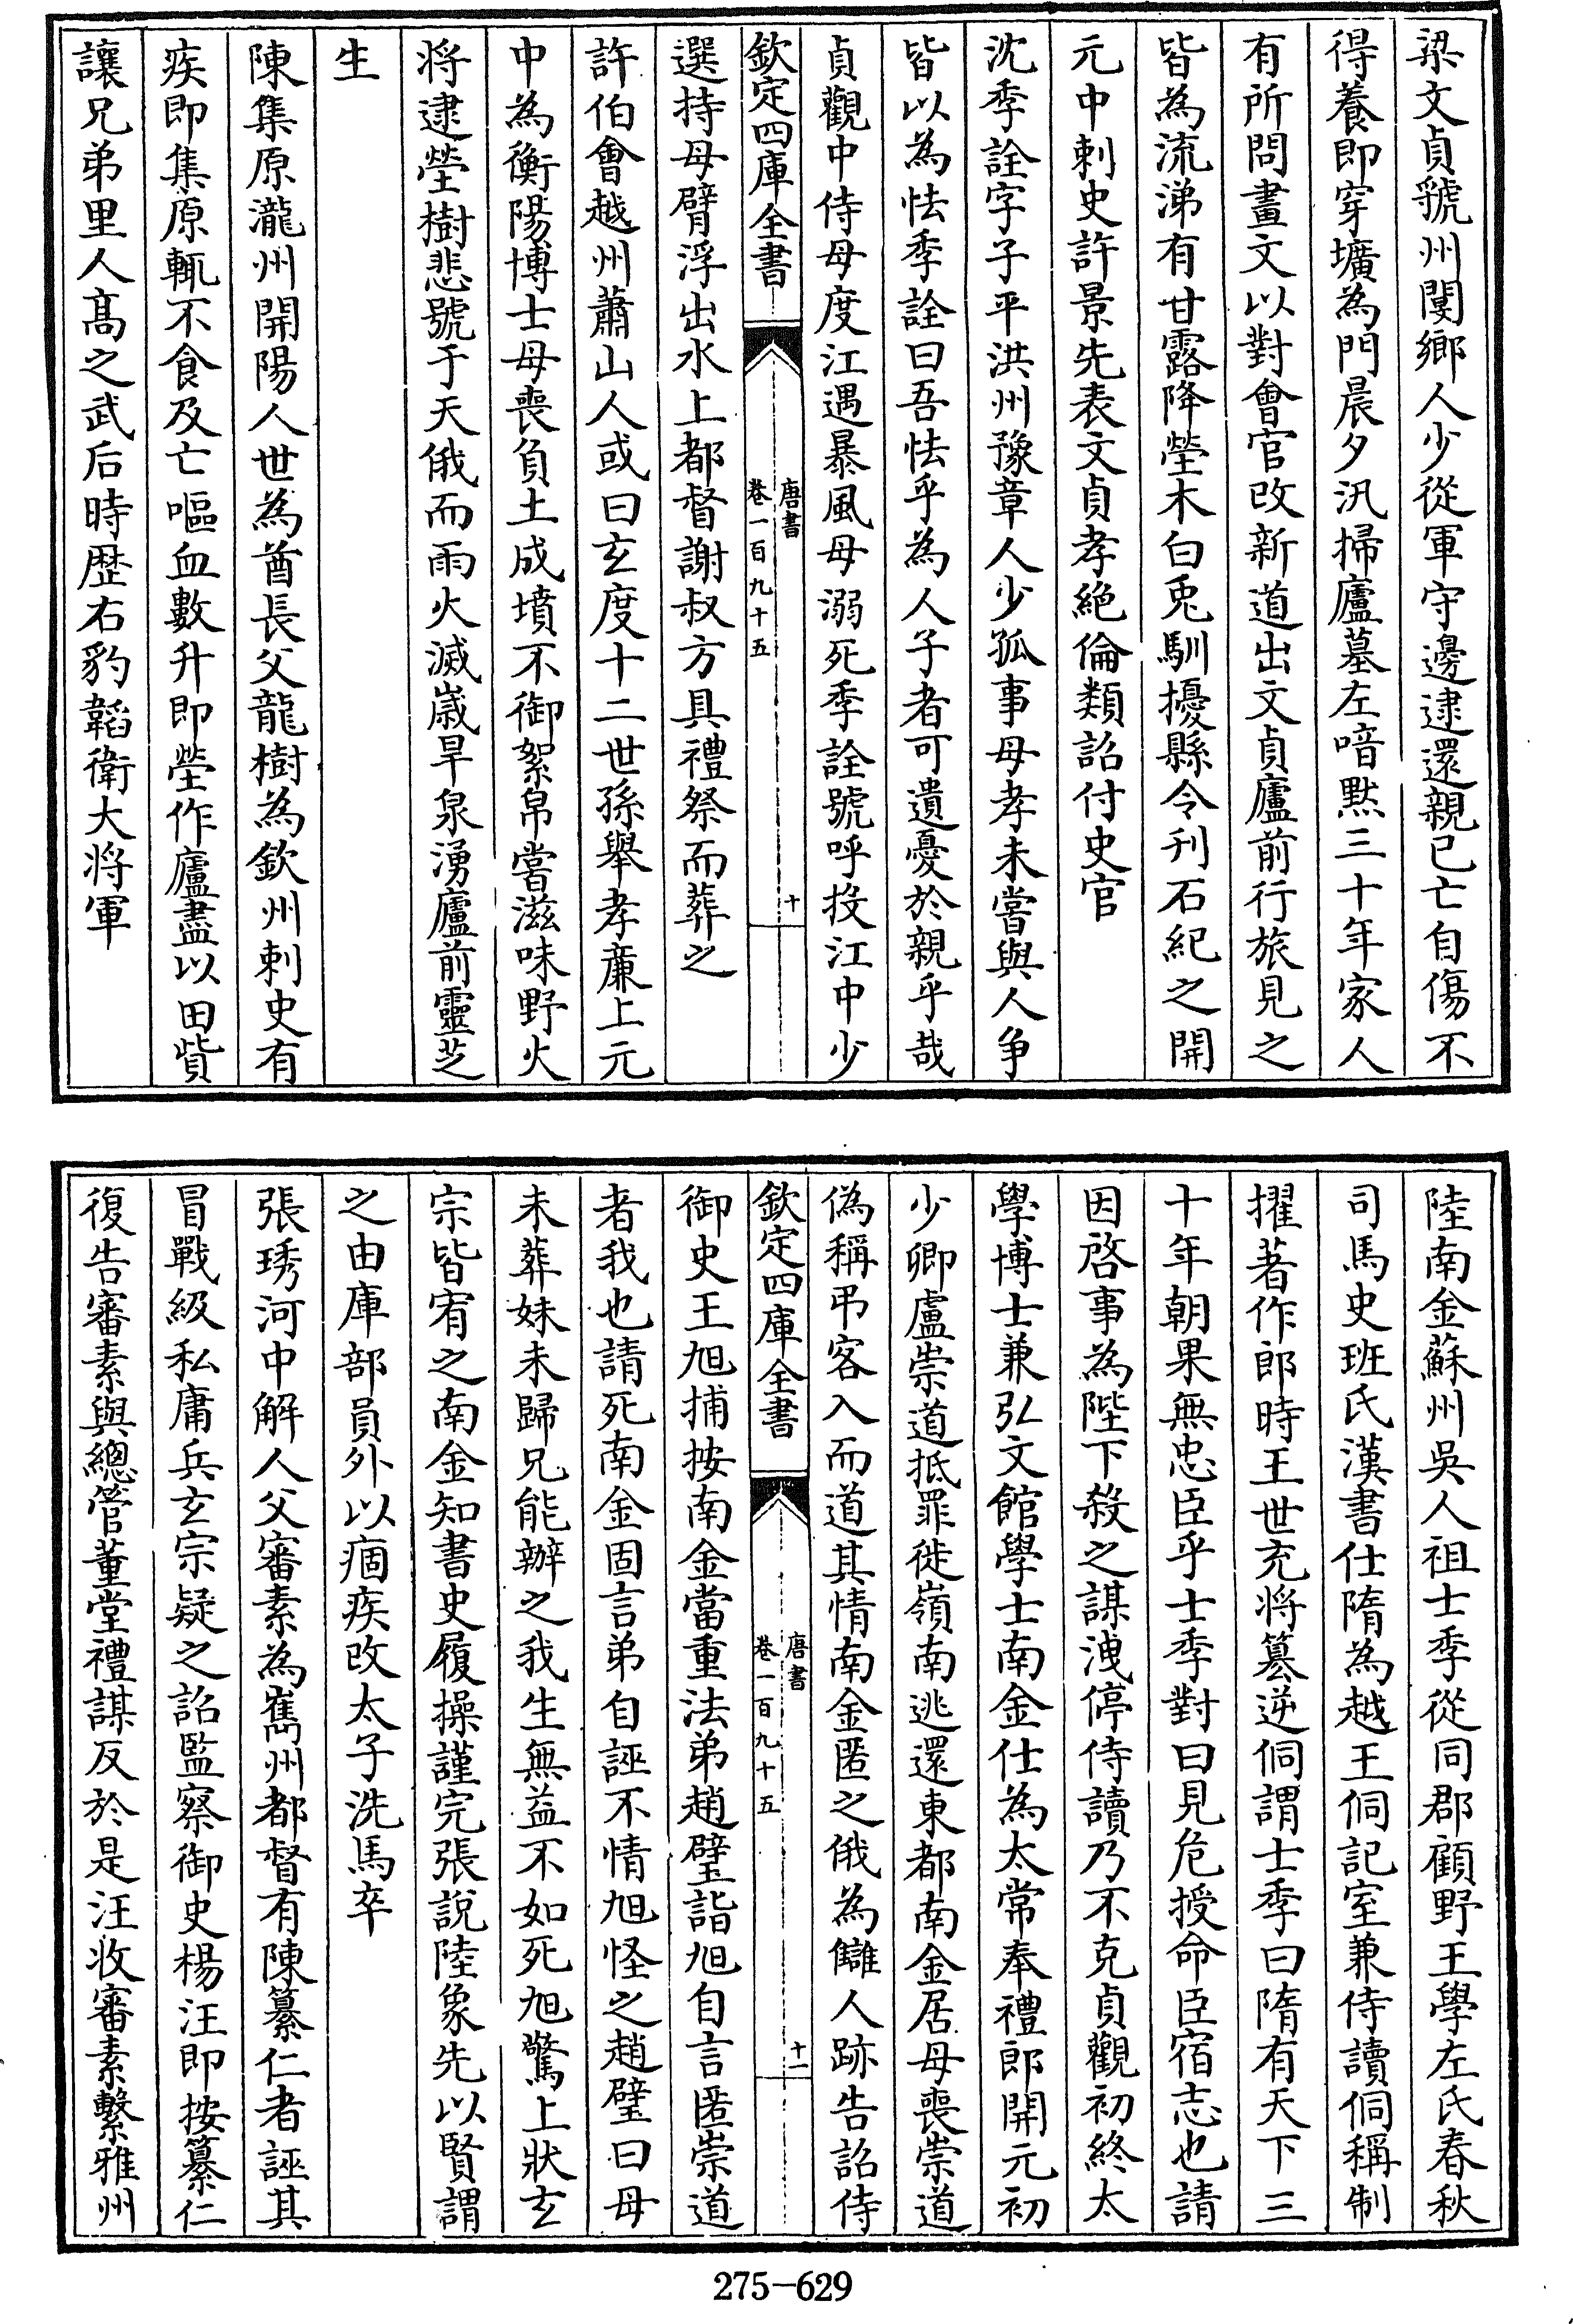 梁文貞虢州閿鄉人少從軍守邊逮還親已亡自傷不
得養即穿壙為門晨夕汛掃廬墓左喑黙三十年家人
有所問畫文以對會官改新道出文貞廬前行旅見之
皆為流涕有甘露降塋木白兎馴擾縣令刊石紀之開
元中刺史許景先表文貞孝絶倫類詔付史官
沈季詮字子平洪州豫章人少孤事母孝未嘗與人争
皆以為怯季詮曰吾怯乎為人子者可遺憂於親乎哉
貞觀中侍母度江遇暴風母溺死季詮號呼投江中少
欽定四庫全書
唐書
卷一百九十五
十
選持母臂浮出水上都督謝叔方具禮祭而葬之
許伯會越州蕭山人或曰玄度十二世孫舉孝亷上元
中為衡陽博士母喪負土成墳不御絮帛嘗滋味野火
将逮塋樹悲號于天俄而雨火滅嵗旱泉湧廬前靈芝
生
陳集原瀧州開陽人世為酋長父龍樹為欽州刺史有
疾即集原輒不食及亡嘔血數升即塋作廬盡以田貲
讓兄弟里人髙之武后時歴右豹韜衛大将軍
陸南金蘇州吳人祖士季從同郡顧野王學左氏春秋
司馬史班氏漢書仕隋為越王侗記室兼侍讀侗稱制
擢著作郎時王世充将簒逆侗謂士季曰隋有天下三
十年朝果無忠臣乎士季對曰見危授命臣宿志也請
因啓事為陛下殺之謀洩停侍讀乃不克貞觀初終太
學博士兼弘文館學士南金仕為太常奉禮郎開元初
少卿盧崇道抵罪徙嶺南逃還東都南金居母喪崇道
偽稱弔客入而道其情南金匿之俄為讎人跡告詔侍
欽定四庫全書
唐書
卷一百九十五
十一
御史王旭捕按南金當重法弟趙璧詣旭自言匿崇道
者我也請死南金固言弟自誣不情旭怪之趙璧曰母
未葬妹未歸兄能辦之我生無益不如死旭驚上狀玄
宗皆宥之南金知書史履操謹完張說陸象先以賢謂
之由庫部員外以痼疾改太子洗馬卒
張琇河中解人父審素為嶲州都督有陳纂仁者誣其
冒戰級私庸兵玄宗疑之詔監察御史楊汪即按纂仁
復告審素與總管董堂禮謀反於是汪收審素繫雅州
275-629